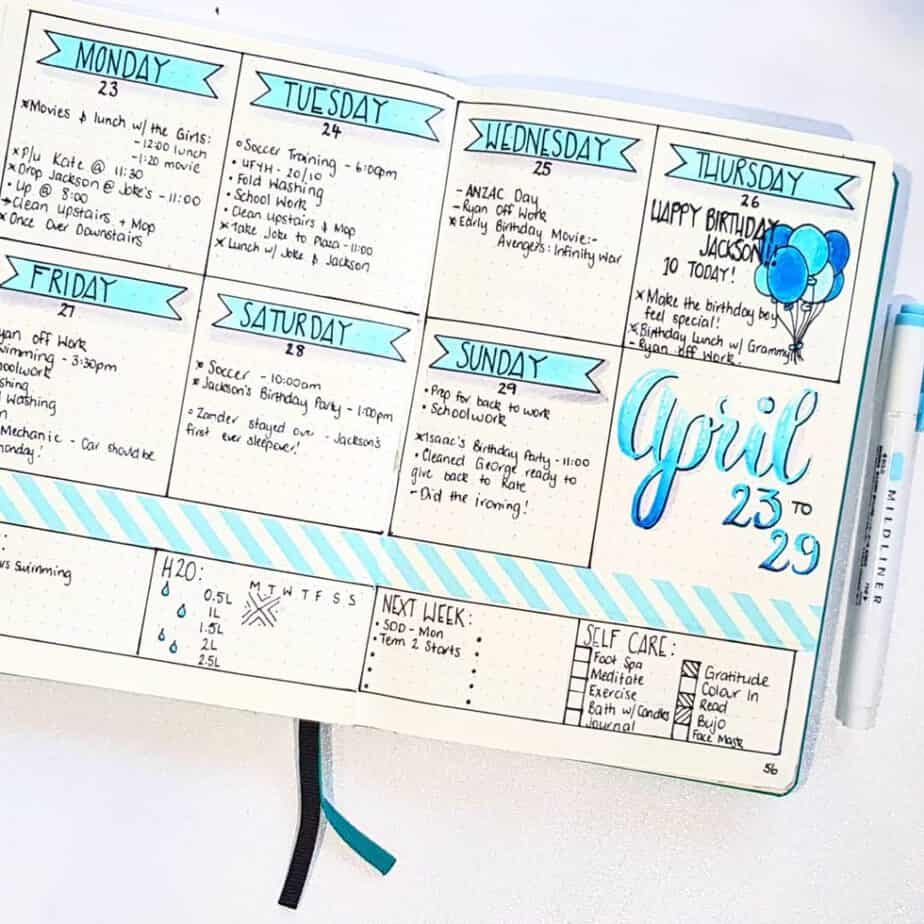 MONDAY
23
*Movies & lunch w/ the Girls:
-12:00 lunch
-1:20 movie
*P/u Kate @ 11:30
*Drop Jackson @ Joke's - 11:00
• Up @ 8:00
Clean Upstairs + Mop
*Once Over Downstairs
TUESDAY
24
o Soccer Training - 6:00pm
• UFYH - 20/10
• Fold Washing
• School Work
• Clean Upstairs & Mop
*Take Joke to Plaza - 11:00
*Lunch w/ Joke & Jackson
WEDNESDAY
25
- ANZAC Day
- Ryan Off Work
*Early Birthday Movie:-
Avengers: Infinity War
THURSDAY
26
HAPPY BIRTHDAY
JACKSON!!
10 TODAY!
*Make the birthday boy
feel special!
*Birthday Lunch w/ Grammy
- Ryan off Work!
FRIDAY
27
yan off Work
wimming - 3:30pm
oolwork
shing
Washing
Mechanic - Car should be
onday!
SATURDAY
28
* Soccer - 10:00am
* Jackson's Birthday Party - 1:00pm
o Zander stayed over - Jackson's
first ever sleepover!
SUNDAY
29
• Prep for back to work
• Schoolwork
*Isaac's Birthday Party - 11:00
• Cleaned George ready to
give back to Kate
- Did the ironing!
April
23 TO
29
swimming
H2O:
M T W T F S S
0.5L
1L
1.5L
2L
2.5L
NEXT WEEK:
• SOD - Mon
• Term 2 Starts
SELF CARE:
Foot Spa
Meditate
Exercise
Bath w/ Candles
Journal
Gratitude
Colour In
Read
Bujo
Face Mask
56
MILDLINER